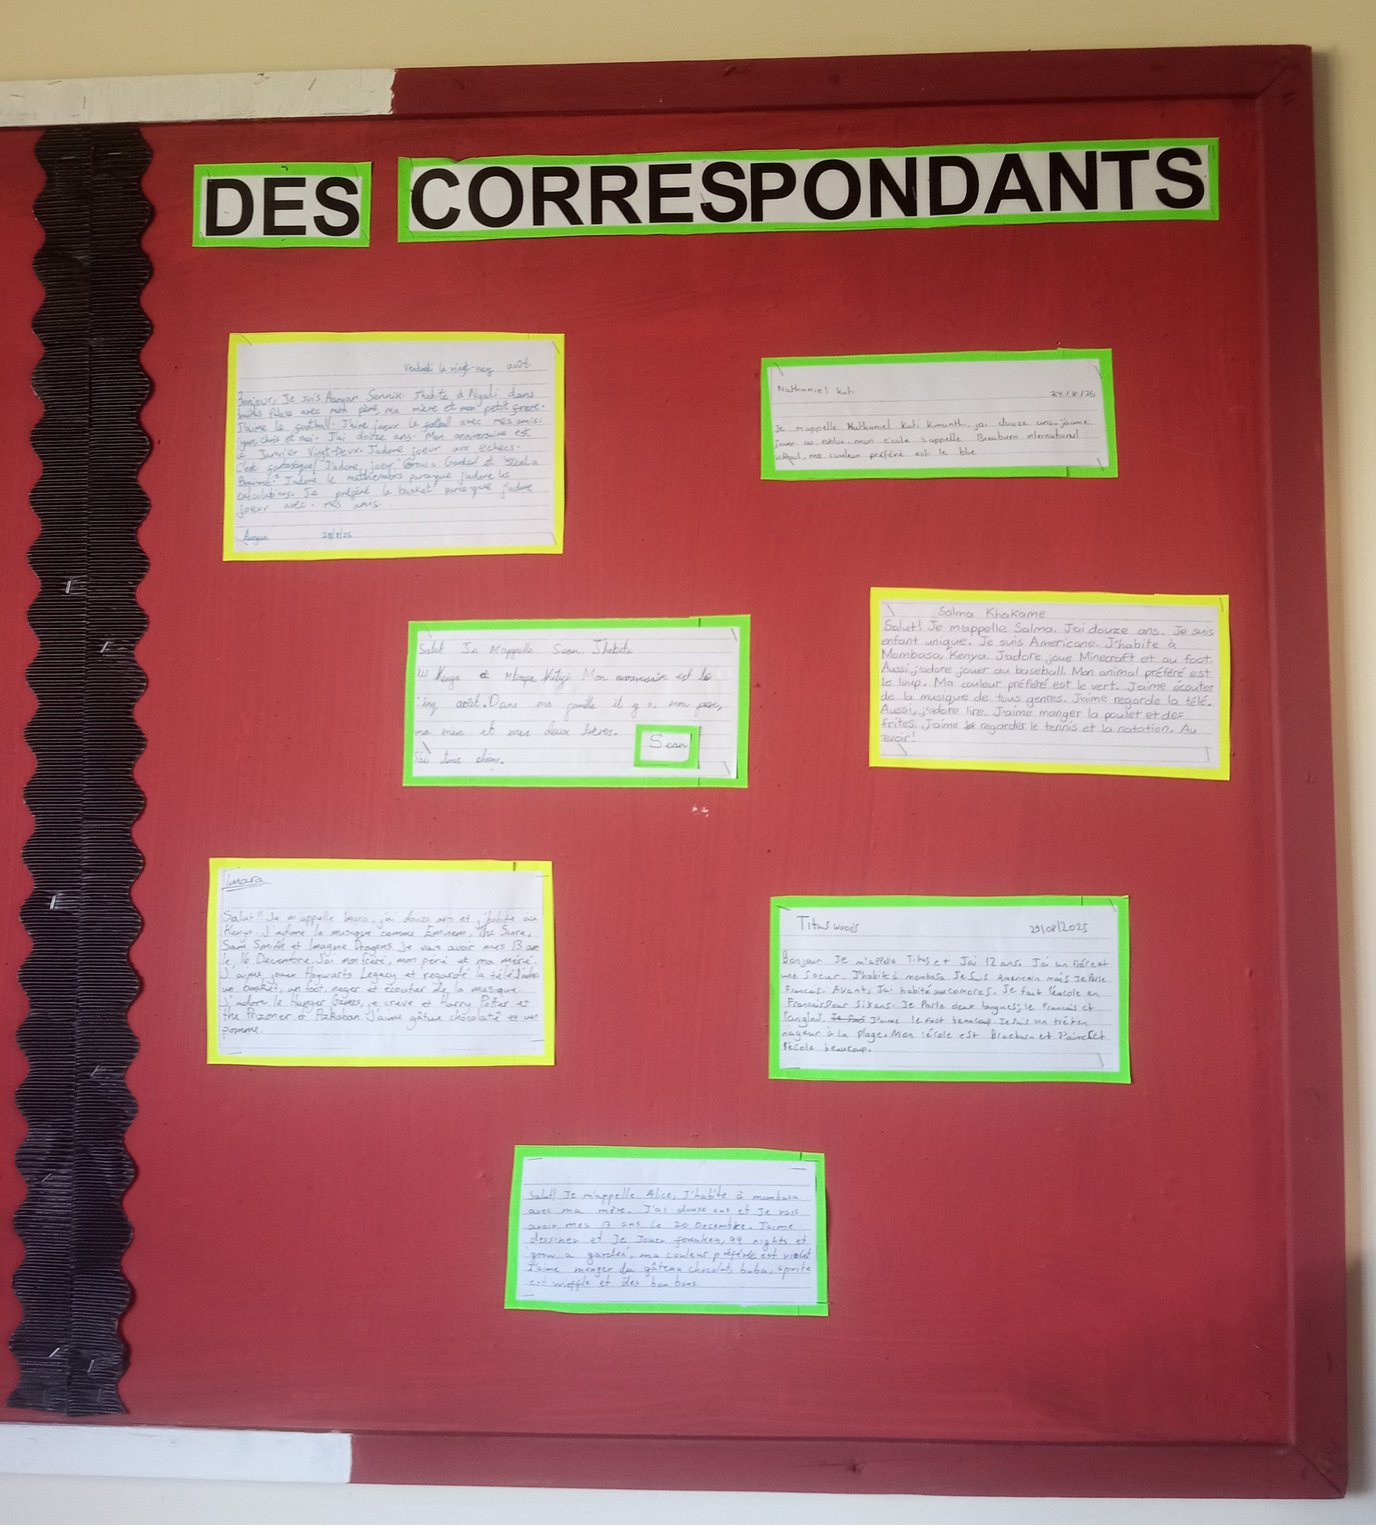 DES CORRESPONDANTS
Vendredi le vingt-neuf août.
Bonjour, Je suis Aaryan Sonnik. J'habite à Nyali dans
Palace avec mon père, ma mère et mon petit frere.
J'aime le football. J'aime joeur le football avec mes amis:
Chris et moi. J'ai douze ans. Mon anniversaire est
Janvier Vingt-Deux. J'adore joeur aux echecs.
C'est fantastique! J'adore joeur Grow a Garden et Steal a
Brainrot. J'adore le parceque j'adore les
calculations. Je préfére le basket parceque j'adore
joeur avec mes amis.
Aaryan 29/8/25
Nathaniel Kuti
29/8/25
Je m'appelle Nathaniel Kuti Kimanthi, jai douze ans. j'aime
jouer au roblox. mon école s'appelle Braeburn international
school. ma couleur préféré est le blue
Salut Je M'appelle Sean, J'habite
Kenya Mon anniversaire est le
cinq août. Dans ma famille il y a mon pere,
ma mère et mes deux
J'ai trois chiens.
Sean
Salma Khakame
Salut! Je m'appelle Salma. J'ai douze ans. Je suis
enfant unique. Je suis Americane. J'habite à
Mombasa, Kenya. J'adore joue Minecraft et au foot.
Aussi, j'adore jouer au baseball. Mon animal préféré est
le loup. Ma couleur préféré est le vert. J'aime ecouter
de la musique de tous genres. J'aime regarde la télé.
Aussi, j'adore lire. J'aime manger la poulet et des
frites. J'aime regarder le tennis et la natation. Au
revoir!
Imara
Salut!! Je m'appelle Imara, j'ai douze ans et j'habite au
Kenya. J'adore la musique comme Eminem, The Score,
Sam Smith et Imagine Dragons. Je vais avoir mes 13 ans
le 16 Decembre. J'ai mon frére, mon péré et ma méré.
J'aime jouer Hogwarts Legacy et regardé la télé. J'adore
un basket, un foot, nager et écouter de la musique.
J'adore le Hunger Games, je crève et Harry Potter et
the Prizoner of Azkaban. J'aime gâtue chocolatê et un
pomme.
Titus woods
29/08/2025
Bonjour Je m'apelle Titus et Jai 12 ans. Jai un frére et
une Soeur. J'habite à mombasa. Je Suis Americain mais Je Parle
Francais. Avant, J'ai habité au comores. Je fait l'école en
Francais Pour Six ans. Je Parle deux langues; le Francais et
l'anglais. J'aime le foot beaucoup. Je Suis un trés bon
nageur à la Plage. Mon l'école est Braeburn et J'aime cet
l'école beaucoup.
Salut! Je m'appelle Alice, J'habite à mombasa
avec ma mère. J'ai douze ans et Je vais
avoir mes 13 ans le 20 Decembre. J'aime
dessiner et Je Jouer forsaken, 99 nights et
grow a garden, ma couleur préférée est violet
J'aime manger du gâteau chocolat, boba, sprite
est waffle et des bonbons.